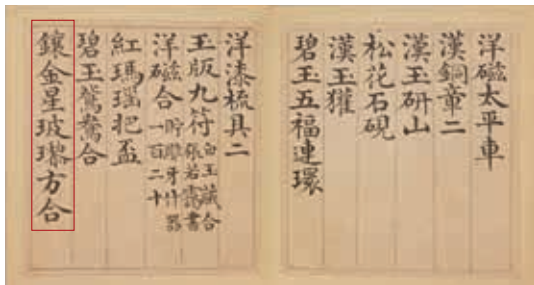 洋磁太平車
漢銅章二
漢玉研山
松花石硯
漢玉獾
碧玉五福連環
洋漆梳具二
玉版九符 白玉藏合 張若靄書
洋磁合 貯雕牙什器 一百二十
紅瑪瑙把盃
碧玉鴛鴦合
鑲金星玻瓈方合